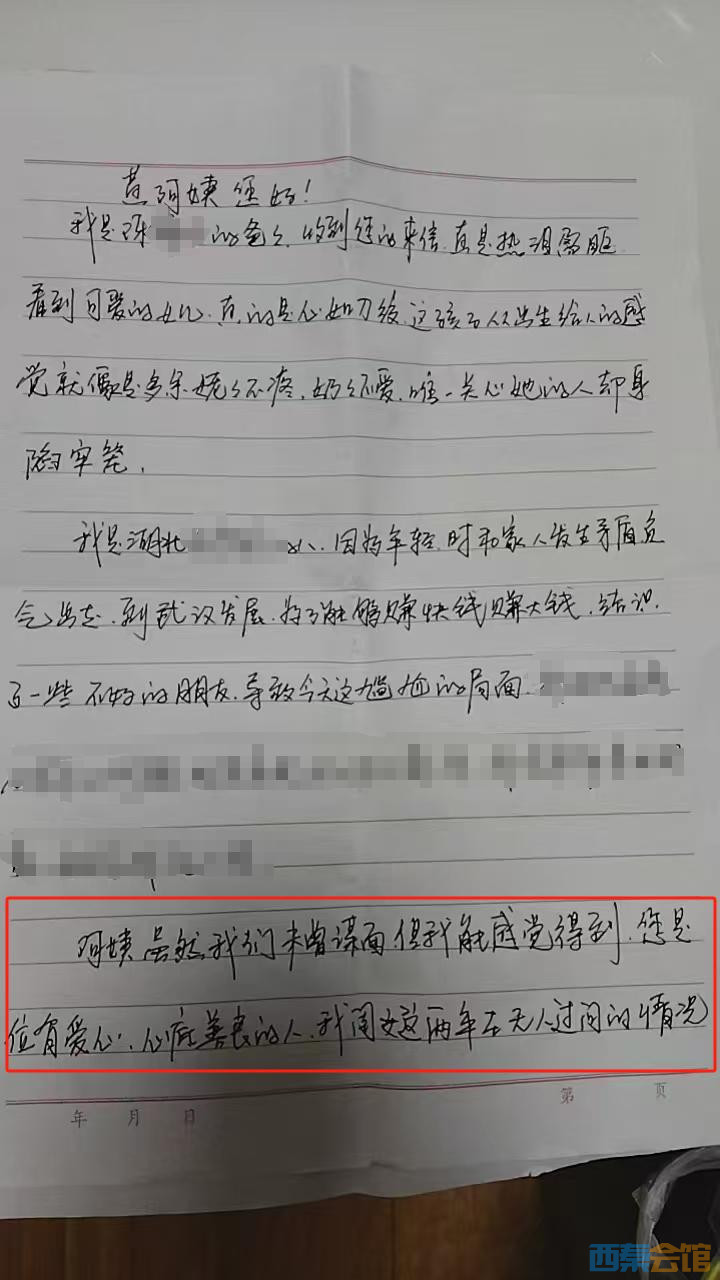 黄阿姨您好!
我是陈 的爸爸,收到您的来信,真是热泪盈眶
看到可爱的女儿,真的是心如刀绞,这孩子从出生给人的感
觉就像是多余,姥姥不疼,奶奶不爱,唯一关心她的人却身
陷牢笼,
我是湖北 人,因为年轻时和家人发生矛盾负
气出走,到武汉发展,为了能够赚快钱赚大钱,结识
了一些不好的朋友,导致今天这尴尬的局面,
阿姨虽然我们未曾谋面但我能感觉得到,您是
位有爱心,心底善良的人,我闺女这两年在无人过问的情况
年 月 日
第 页
西秦会馆